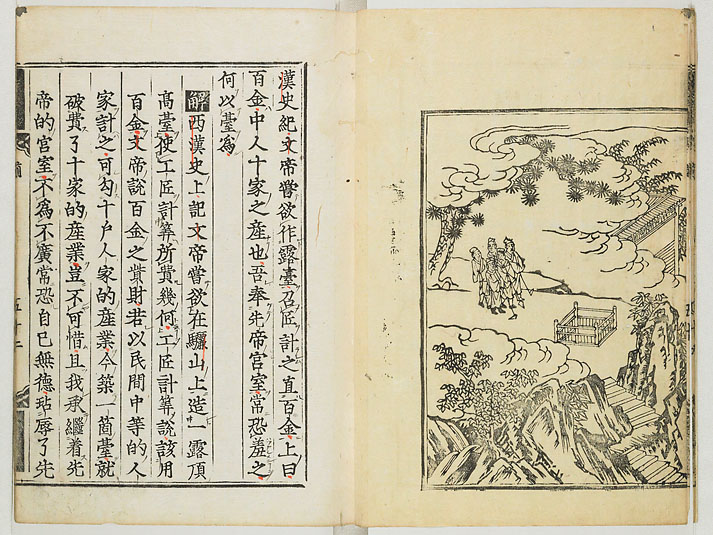 漢史紀文帝嘗欲作露臺召匠計之直百金上曰
百金中人十家之産也吾奉先帝官室常恐羞之
何以臺爲
解西漢史上記文帝嘗欲在驪山上造一露頂
高臺使工匠計筭所費幾何工匠計筭說該用
百金文帝說百金之業財若以民間中等的人
家計之可勾十户人家的産業今築一箇臺就
破費了十家的産業豈不可惜且我承繼着先
帝的官室不爲不廣常恐自己無德玷辱了先
五十二